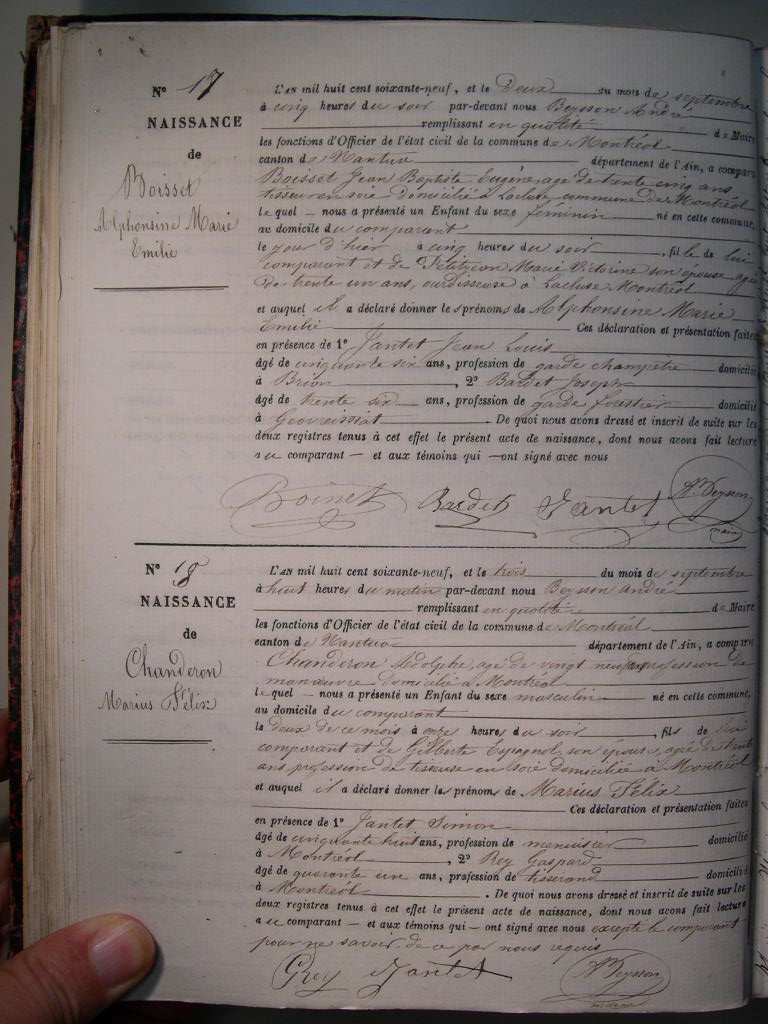 N° 17
NAISSANCE
de
Boisset
Alphonsine Marie
Emilie
L'AN mil huit cent soixante-neuf, et le Deux du mois de septembre
à cinq heures du soir par-devant nous Beysson André
remplissant en qualité de Maire
les fonctions d'Officier de l'état civil de la commune de Montréal
canton de Nantua département de l'Ain, a comparu
Boisset Jean Baptiste Eugène, agé de trente cinq ans
tisseur en soie domicilié à Lacluse commune de Montréal
le quel – nous a présenté un Enfant du sexe feminin né en cette commune,
au domicile du comparant
le jour d'hier à cinq heures du soir, fille de lui
comparant et de Petitjean Marie Victorine son épouse, agée
de trente un ans, ourdisseuse à Lacluse Montréal
et auquel il a déclaré donner les prénoms de Alphonsine Marie
Emilie Ces déclaration et présentation faites
en présence de 1° Jantet Jean Louis
âgé de cinquante six ans, profession de garde champetre domicilié
à Brion, 2° Bardet Joseph
âgé de trente six ans, profession de garde forestier domicilié
à Geovreissiat. De quoi nous avons dressé et inscrit de suite sur les
deux registres tenus à cet effet le présent acte de naissance, dont nous avons fait lecture
au comparant – et aux témoins qui – ont signé avec nous
Boisset Bardet Jantet Ad Beysson
maire
N° 18
NAISSANCE
de
Chanderon
Marius Félix
L'AN mil huit cent soixante-neuf, et le trois du mois de septembre
à huit heures du matin par-devant nous Beysson André
remplissant en qualité de Maire
les fonctions d'Officier de l'état civil de la commune de Montréal
canton de Nantua département de l'Ain, a comparu
Chanderon Adolphe, agé de vingt neuf ans profession de
manœuvre domicilié à Montréal
le quel – nous a présenté un Enfant du sexe masculin né en cette commune,
au domicile du comparant
le deux de ce mois à onze heures du soir, fils de lui
comparant et de Gilberte Espagnol son épouse, agée de trente
ans, profession de tisseuse en soie domiciliée à Montréal
et auquel il a déclaré donner les prénoms de Marius Félix
Ces déclaration et présentation faites
en présence de 1° Jantet Simon
âgé de cinquante huit ans, profession de menuisier domicilié
à Montréal, 2° Rey Gaspard
âgé de quarante un ans, profession de tisserand domicilié
à Montréal. De quoi nous avons dressé et inscrit de suite sur les
deux registres tenus à cet effet le présent acte de naissance, dont nous avons fait lecture
au comparant – et aux témoins qui – ont signé avec nous excepté le comparant
pour ne savoir de ce par nous requis
Rey Jantet Ad Beysson
maire